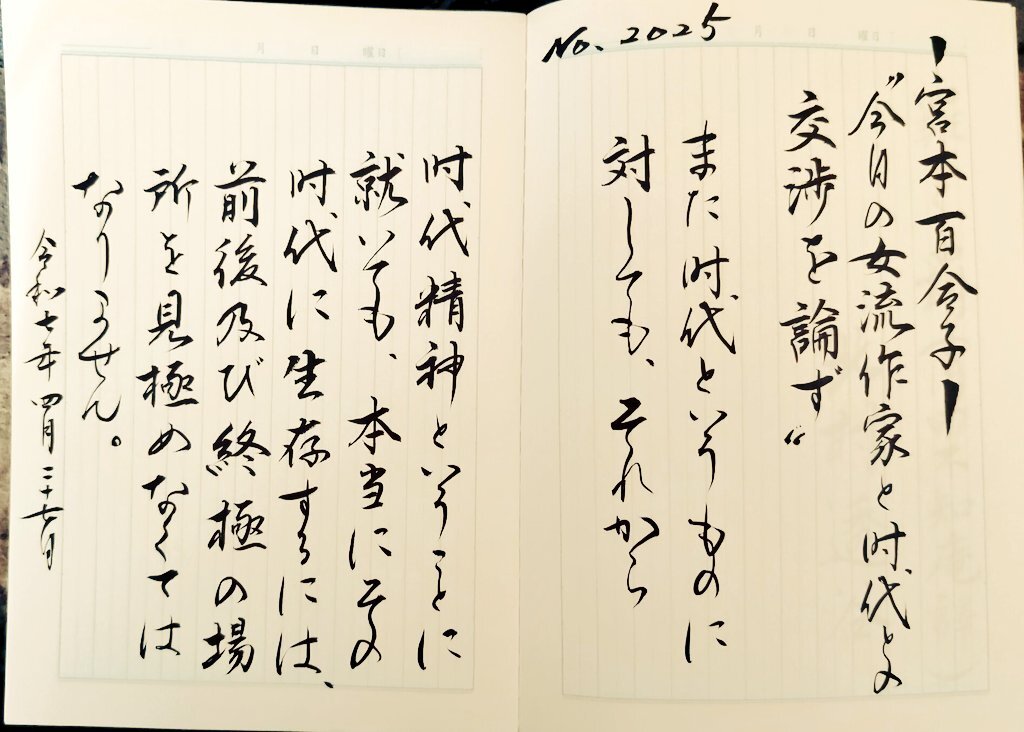 No. 2025
ー宮本百合子ー
"今日の女流作家と時代との
交渉を論ず"
また時代というものに
対しても、それから
時代精神ということに
就いても、本当にその
時代に生存するには、
前後及び終極の場
所を見極めなくては
なりません。
令和七年四月二十七日
月 日 曜日
月 日 曜日